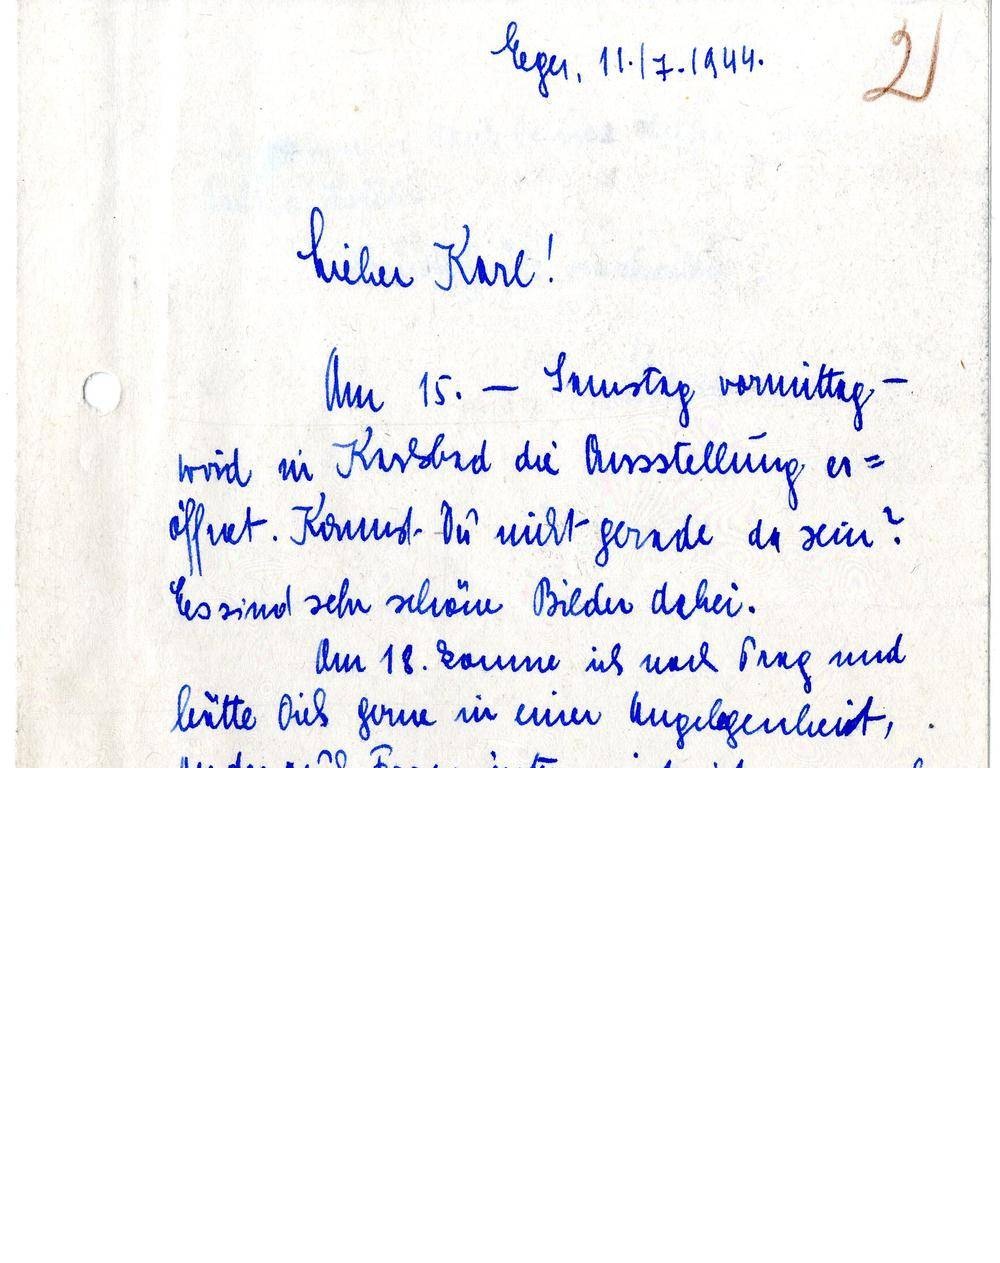 Eger, 11./7.1944.
2
Lieber Karl!
Am 15. — Samstag vormittag —
wird in Karlsbad die Ausstellung er=
öffnet. Kannst Du nicht gerade da sein?
Es sind sehr schöne Bilder dabei.
Am 18. komme ich nach Prag und
hätte Dich gerne in einer Angelegenheit,